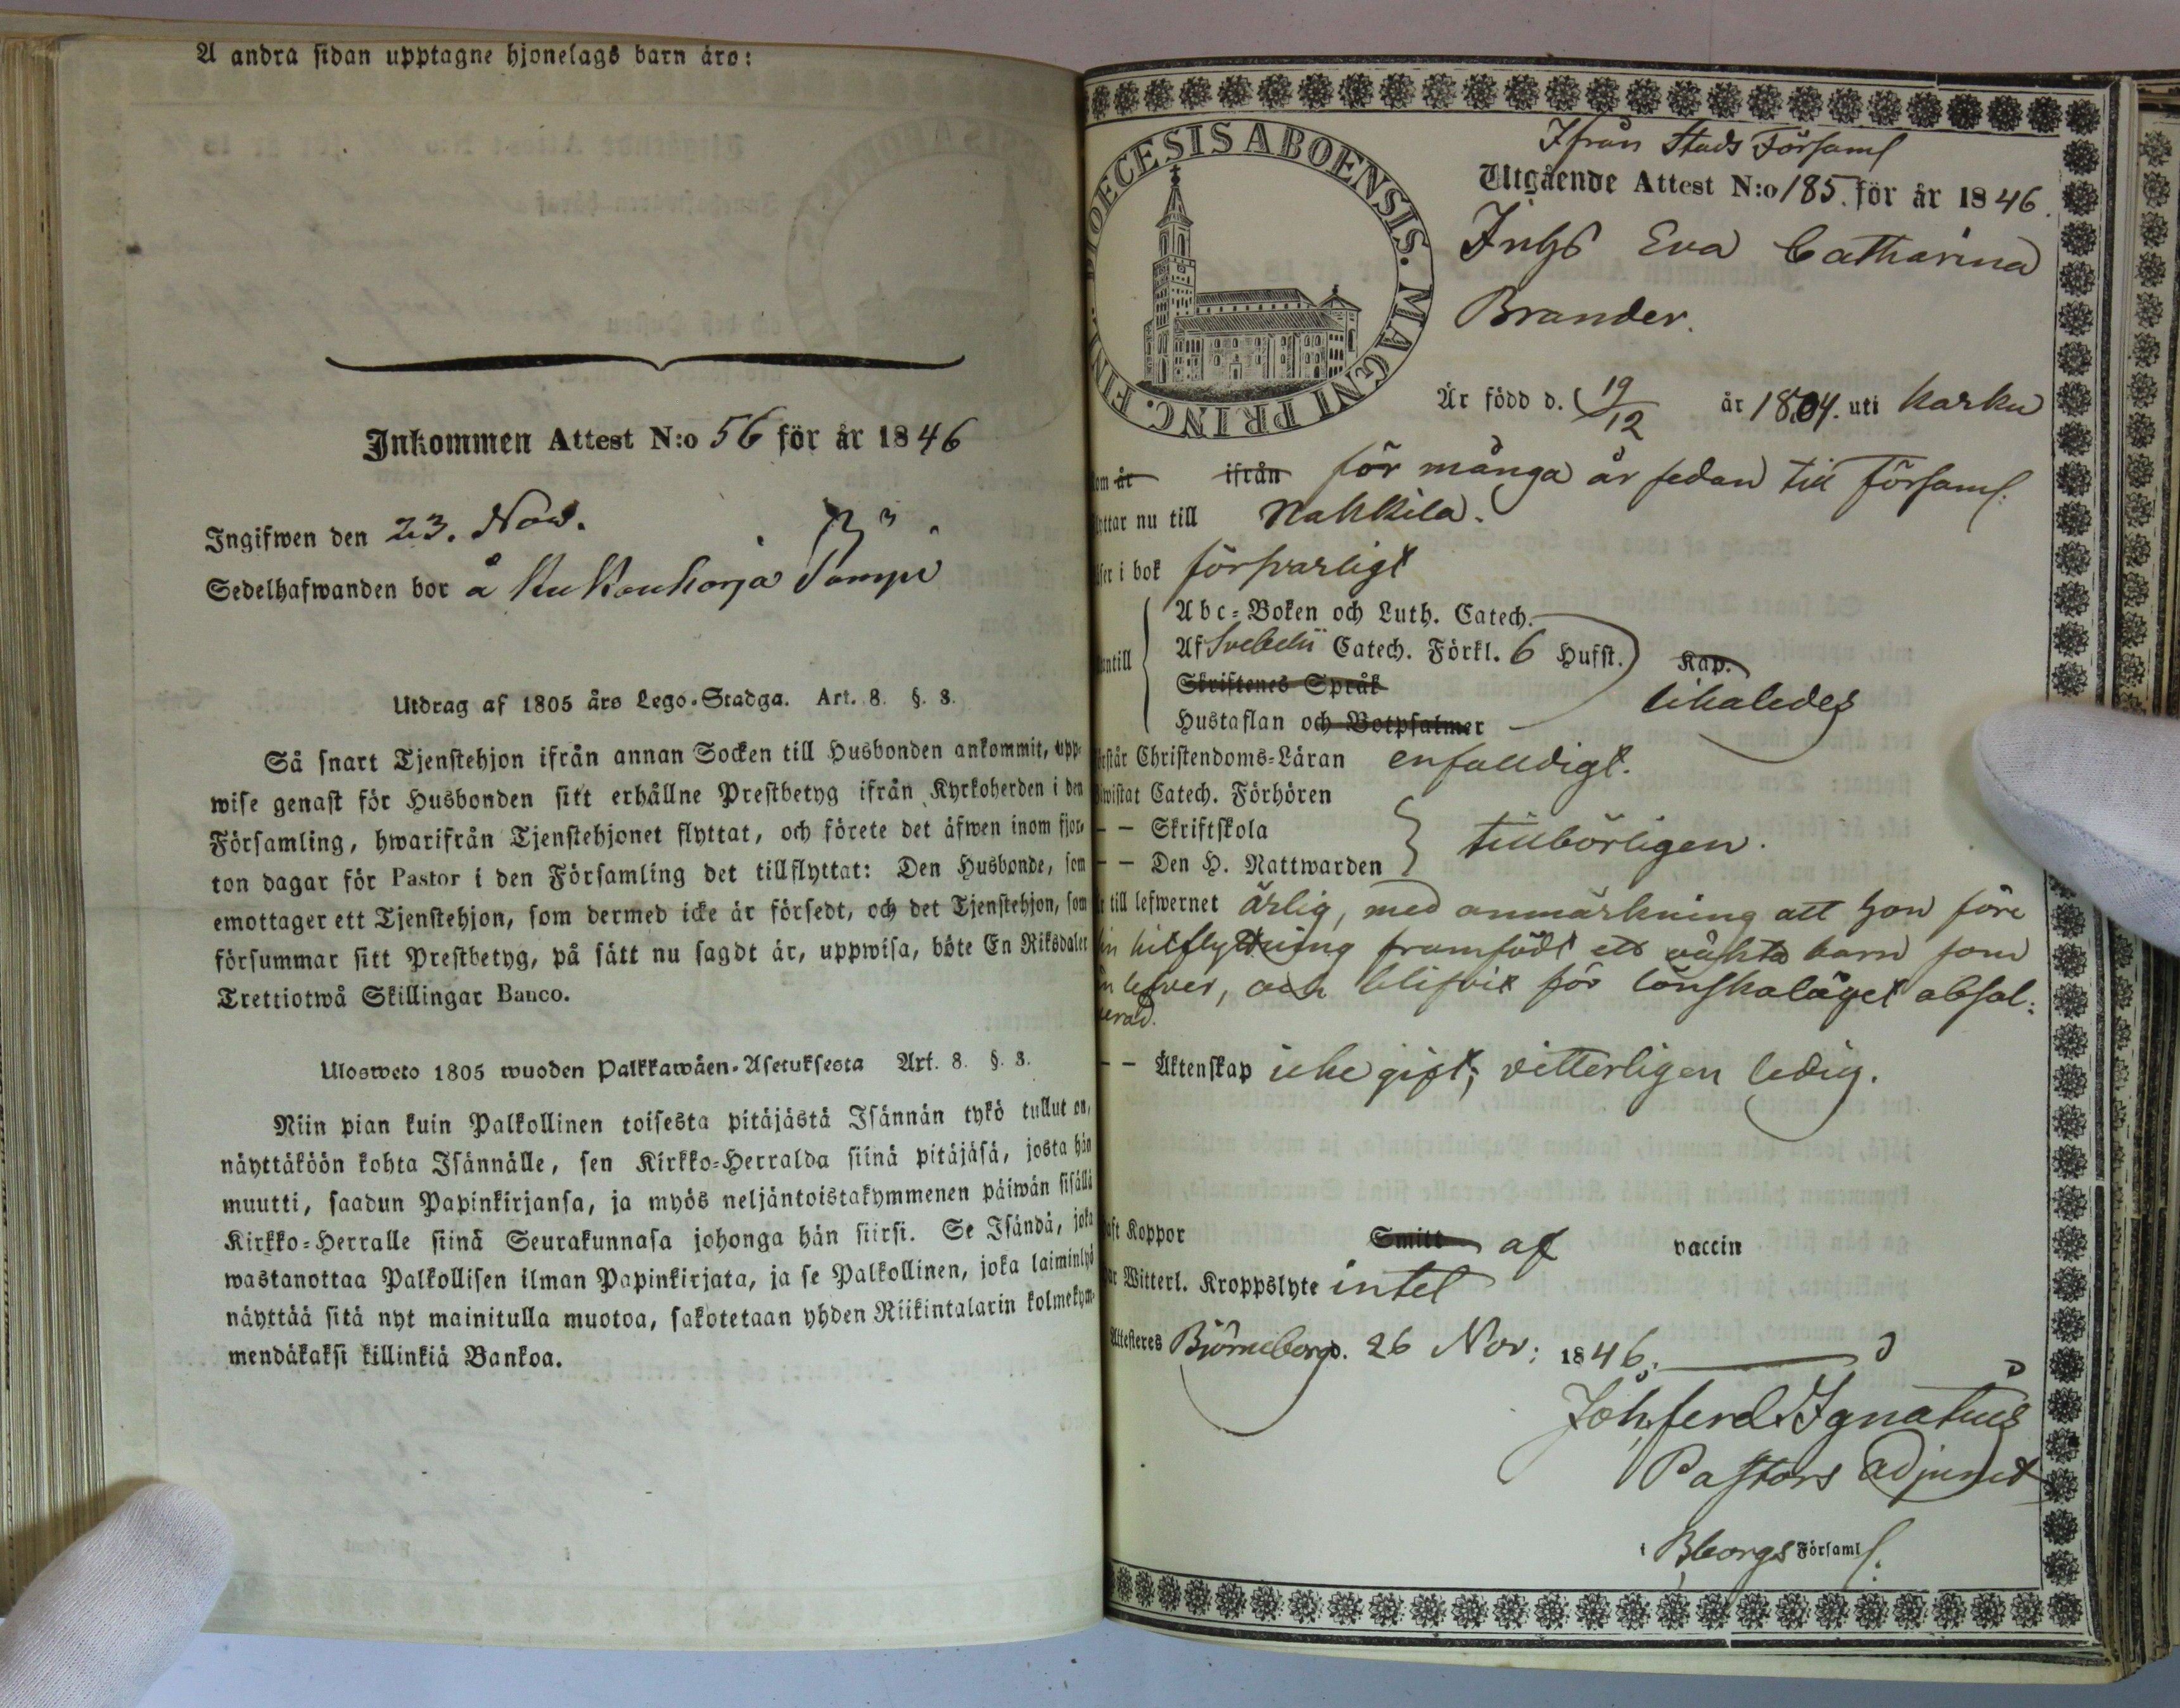 A andra sidan upptagne hjonelags barn äro:
Inkommen Attest N:o 56 för år 1846
Ingifwen den 23. Nov.
Sedelhafwanden bor å Kukonharja
Utdrag af 1805 års Lego-Stadga. Art. 8. §. 3.
Så snart Tjenstehjon ifrån annan Socken till Husbonden ankommit, upp-
wise genast för Husbonden sitt erhållne Prestbetyg ifrån Kyrkoherden i den
Församling, hwarifrån Tjenstehjonet flyttat, och förete det äfwen inom fjor-
ton dagar för Pastor i den Församling det tillflyttat: Den Husbonde, som
emottager ett Tjenstehjon, som dermed icke är försedt, och det Tjenstehjon, som
försummar sitt Prestbetyg, på sätt nu sagdt är, uppwisa, böte En Riksdaler
Trettiotwå Skillingar Banco.
Ulosweto 1805 wuoden Palkkawäen-Asetuksesta Art. 8. §. 3.
Niin pian kuin Palkollinen toisesta pitäjästä Isännän tykö tullut on,
näyttäköön kohta Isännälle, sen Kirkko-Herralda siinä pitäjäsä, josta hän
muutti, saadun Papinkirjansa, ja myös neljäntoistakymmenen päiwän sisällä
Kirkko-Herralle siinä Seurakunnasa johonga hän siirsi. Se Isändä, joka
wastanottaa Palkollisen ilman Papinkirjata, ja se Palkollinen, joka laiminlyö
näyttää sitä nyt mainitulla muotoa, sakotetaan yhden Riikintalarin kolmekym-
mendäkaksi killinkiä Bankoa.
DIOECESIS ABOENSIS. MAGNI PRINC. FINL.
Ifrån Stads Församl
Utgående Attest N:o 185. för år 1846.
Eva Catharina
Brander.
Är född d. 19/12 år 1804. uti Karku
om år ifrån för många år sedan till Församl:
yttar nu till Nakkila.
ser i bok försvarligt
Abc-Boken och Luth. Catech.
Af Svebelii Catech. Förkl. 6 Hufst. Kap.
antill
Skriftenes Språk
likaledes
Hustaflan och Botpsalmer
rstår Christendoms-Läran enfalldigt.
wistat Catech. Förhören
– – Skriftskola
tillbörligen.
– – Den H. Nattwarden
till lefwernet ärlig, med anmärkning att hon före
in hitflyttning framfödt ett oäkta barn som
n lefver, och blifvit för lönskaläget absol:
verad.
– – Äktenskap icke gift; vitterligen ledig.
aft Koppor Smitt af vaccin
ar Witterl. Kroppslyte intet
Attesteres Björneborg d. 26 Nov: 1846.
Joh. Ferd. Ignatius
Pastors Adjunct
i Bborgs Församl.